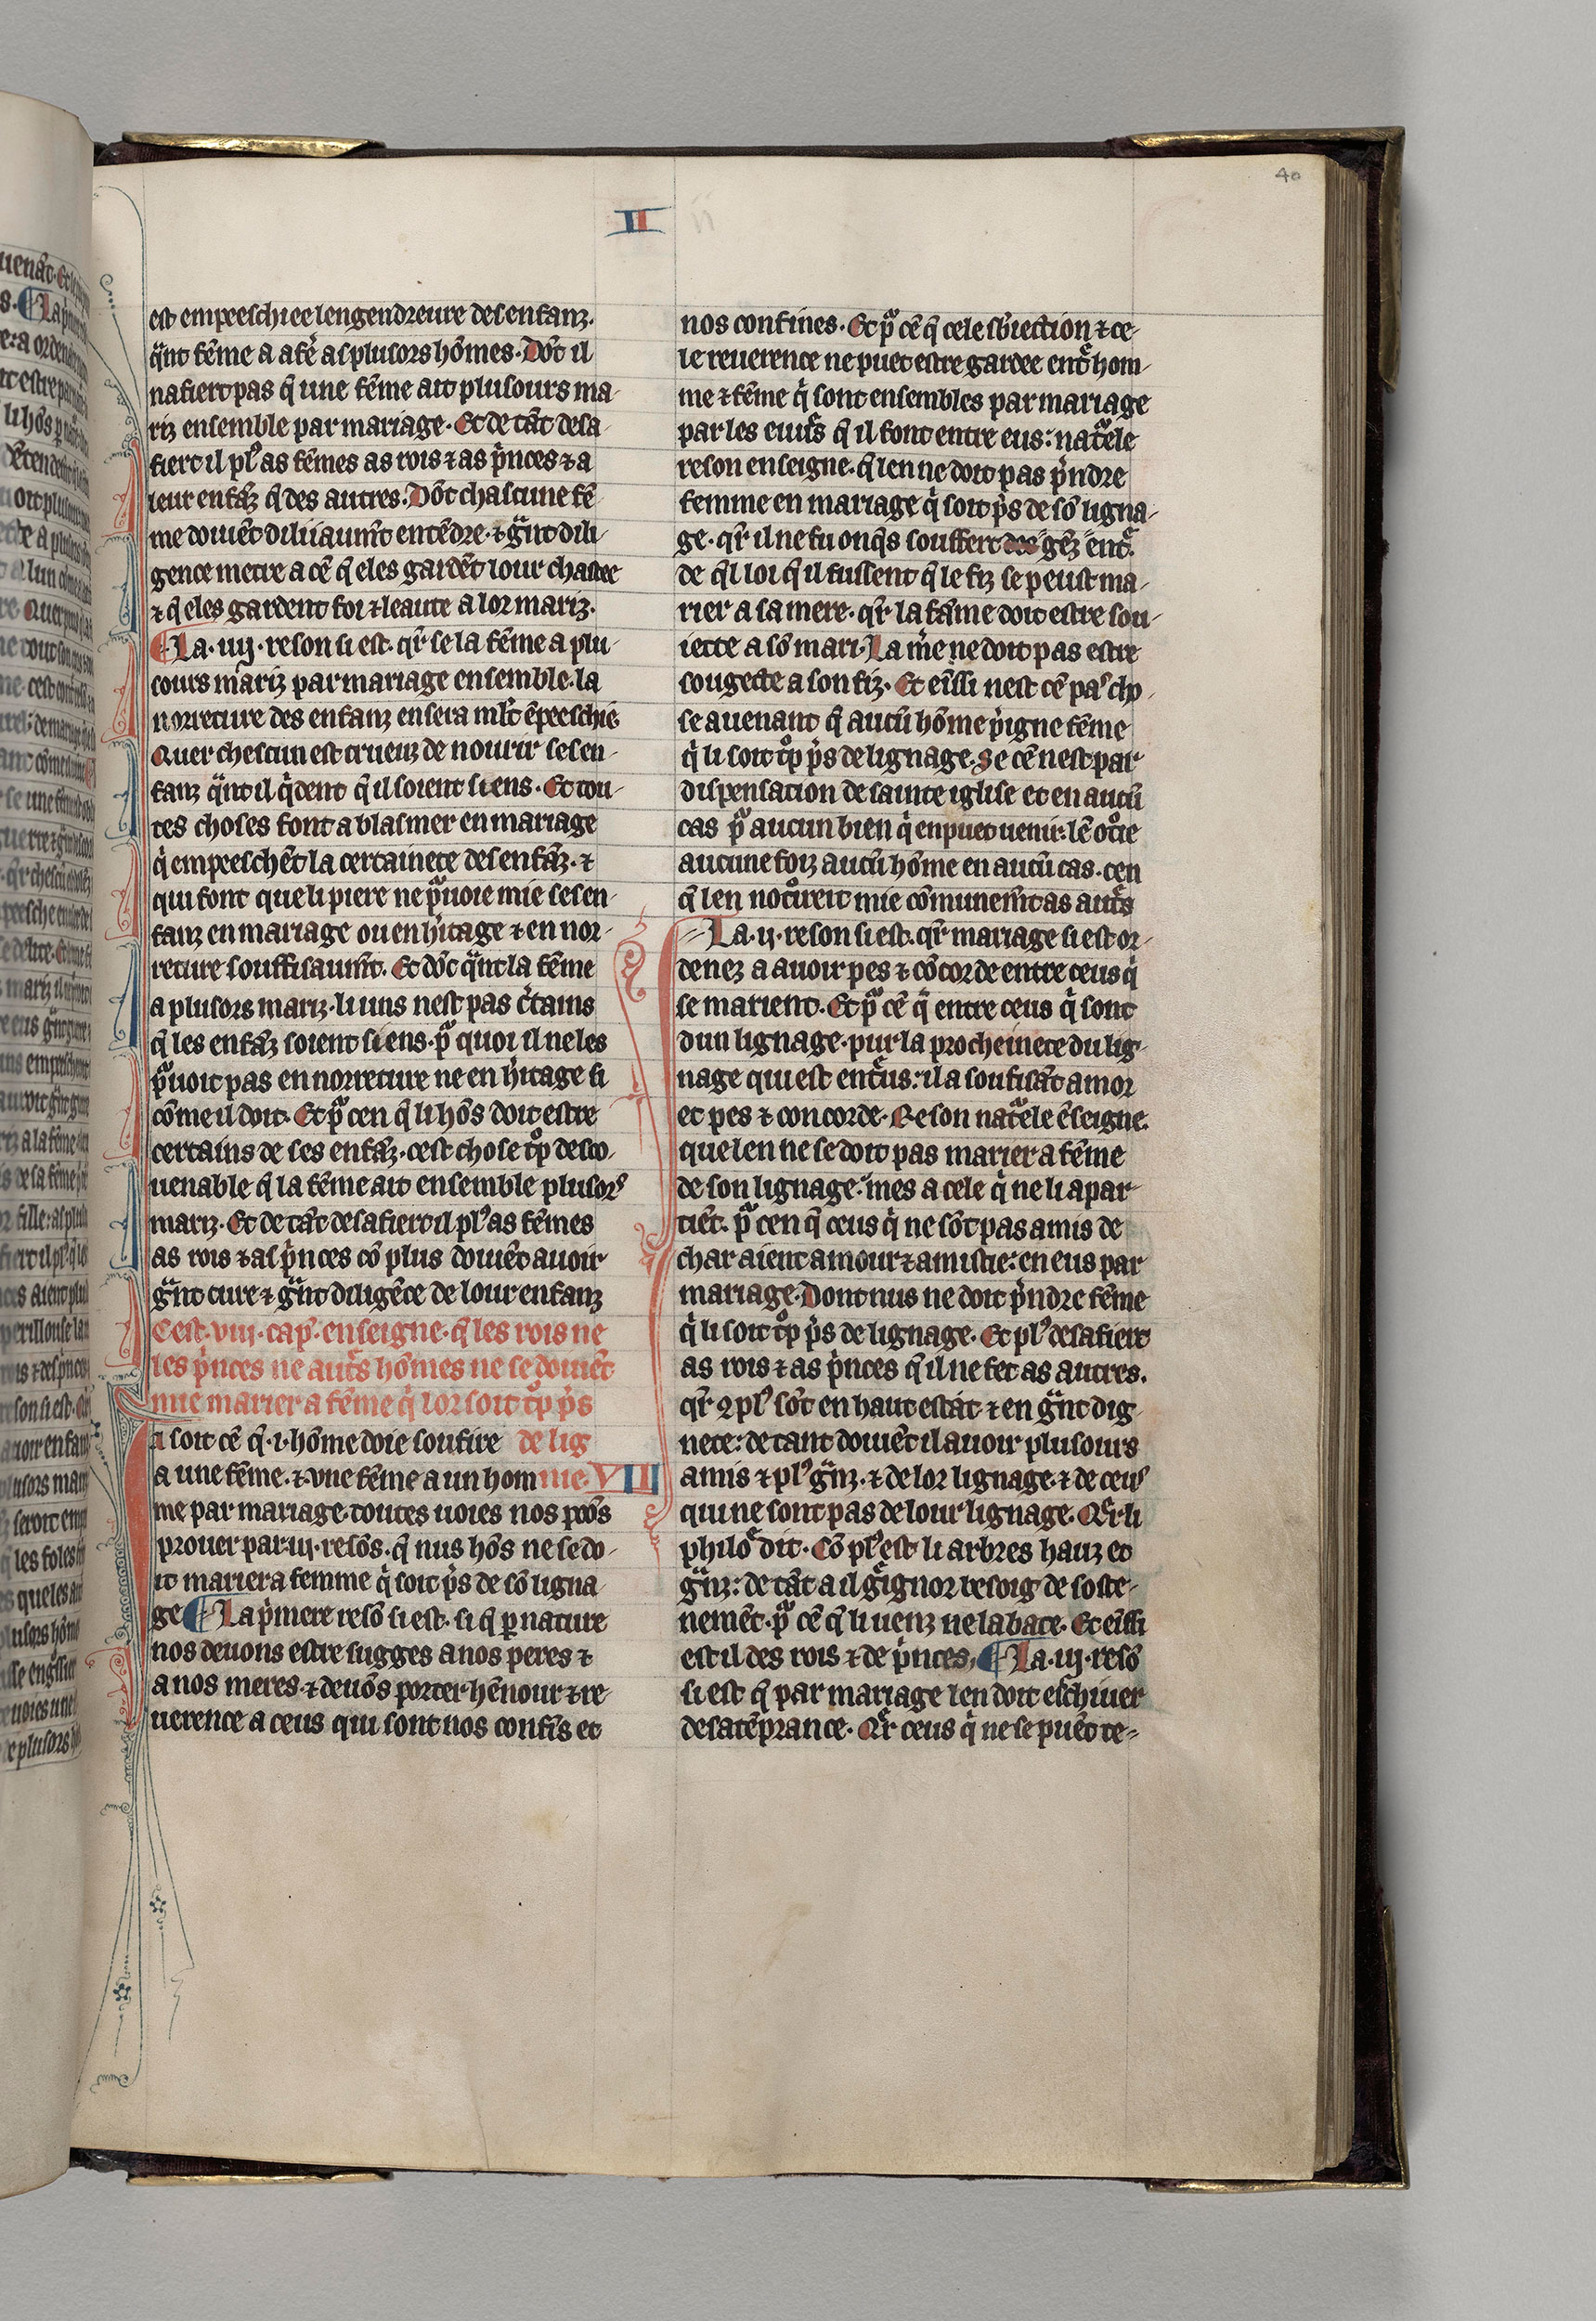 40
II
est empeeschiee lengendreure desenfanz.
q̃nt fẽme a afẽ as plusors hõmes. Dõt il
nafiert pas q̃ une fẽme ait plusours ma-
riz ensemble par mariage. Et de tãt desa-
fiert il plꝰ as fẽmes as rois ⁊ as p̃nces ⁊ a
leur enfãz q̃ des autres. Dõt chascune fẽ
me doiuẽt diliiaum̃t entẽdre. ⁊ g̃nt dili-
gence metre a cẽ q̃ eles gardẽt lour chastee
⁊ q̃ eles gardent foi ⁊ leaute a lor mariz.
¶ La. iiij. reson si est. qr̃ se la fẽme a plu-
sours mariz par mariage ensemble. la
norreture des enfanz en sera ml̃t ẽpeeschie
Quer chescun est crueuz de nourir ses en-
fanz q̃nt il q̃dent q̃ il soient siens. Et tou-
tes choses font a blasmer en mariage
q̃ empeeschẽt la certainete des enfãz. ⁊
qui font que li piere ne p̃uoie mie ses en-
fanz en mariage ou en h̃itage ⁊ en nor-
reture souffisaum̃t. Et dõc q̃nt la fẽme
a plusors mariz. li uns nest pas c̃tains
q̃ les enfãz soient siens. p̃ quoi il ne les
p̃uoit pas en norreture ne en h̃itage si
cõme il doit. Et p̃ cen q̃ li hõs doit estre
certains de ses enfãz. cest chose tͦp desco-
uenable q̃ la fẽme ait ensemble plusorˢ
mariz. Et de tãt desafiert il plꝰ as fẽmes
as rois ⁊ as p̃nces cõ plus doiuẽt auoir
g̃nt cure ⁊ g̃nt diligẽce de lour enfanz
Cest. viij. cap̃. enseigne. q̃ les rois ne
les p̃nces ne aut̃s hõmes ne se doiuẽt
mie marier a fẽme q̃ lor soit tͦp p̃s
a soit cẽ q̃. i. hõme doie soufire de lig
a une fẽme. ⁊ vne fẽme a un hom nie. VIII
me par mariage. toutes uoies nos poõs
prouer par. iij. resõs. q̃ nus hõs ne se do-
it marier a femme q̃ soit p̃s de sõ ligna-
ge ¶ La p̃mere resõ si est. si q̃ p nature
nos deuons estre sugges a nos peres ⁊
a nos meres. ⁊ deuõs porter hẽnour ⁊ re-
uerence a ceus qui sont nos confĩs et
nos confines. Et p̃ cẽ q̃ cele sb̃iection ⁊ ce-
le reuerence ne puet estre gardee ent̃ hom-
me ⁊ fẽme q̃ sont ensembles par mariage
par les euur̃s q̃ il font entre eus: nat̃ele
reson enseigne. q̃ len ne doit pas p̃ndre
femme en mariage q̃ soit p̃s de sõ ligna-
ge. qr̃ il ne fu onq̃s souffert gẽz ent̃.
de q̃l loi q̃ il fussent q̃ le fiz se peust ma-
rier a sa mere. qr̃ la fãme doit estre sou-
iette a sõ mari. La m̃e ne doit pas estre
sougecte a son fiz. Et eĩssi nest cẽ paˢ cho-
se auenant q̃ aucũ hõme p̃igne fẽme
q̃ li soit tͦp p̃s de lignage. Se cẽ nest par
dispensation de sainte iglise et en aucũ
cas p̃ aucun bien q̃ en puet uenir: lẽ ot̃ie
aucune foiz aucũ hõme en aucũ cas. cen
q̃ len not̃ireit mie cõmunem̃t as aut̃s
La. ij. reson si est. qr̃ mariage si est or-
denez a auoir pes ⁊ cõcorde entre ceus q̃
se marient. Et p̃ cẽ q̃ entre ceus q̃ sont
dun lignage. pur la procheinete du lig-
nage qui est ent̃us: il a soufisãt amor
et pes ⁊ concorde. Reson nat̃ele ẽseigne.
que len ne se doit pas marier a fẽme
de son lignage: mes a cele q̃ ne li apar-
tiẽt. p̃ cen q̃ ceus q̃ ne sõt pas amis de
char aient amour ⁊ amistie: en eus par
mariage. Dont nus ne doit p̃ndre fẽme
q̃ li soit tͦp p̃s de lignage. Et plꝰ desafiert
as rois ⁊ as p̃nces q̃ il ne fet as autres.
qr̃ ꝯ plꝰ sõt en haut estat ⁊ en g̃nt dig-
nete: de tant doiuẽt il auoir plusours
amis ⁊ plꝰ g̃nz. ⁊ de lor lignage. ⁊ de ceuˢ
qui ne sont pas de lour lignage. Qr̃ li
philõ dit. Cõ plꝰ est li arbres hauz et
g̃nz: de tãt a il g̃ignor besoig de soste-
nemẽt. p̃ cẽ q̃ li uenz ne labate. Et eĩssi
est il des rois ⁊ de p̃nces. ¶ La. iij. resõ
si est q̃ par mariage len doit eschiuer
desatẽprance. Qr̃ ceus q̃ ne se puẽt te-